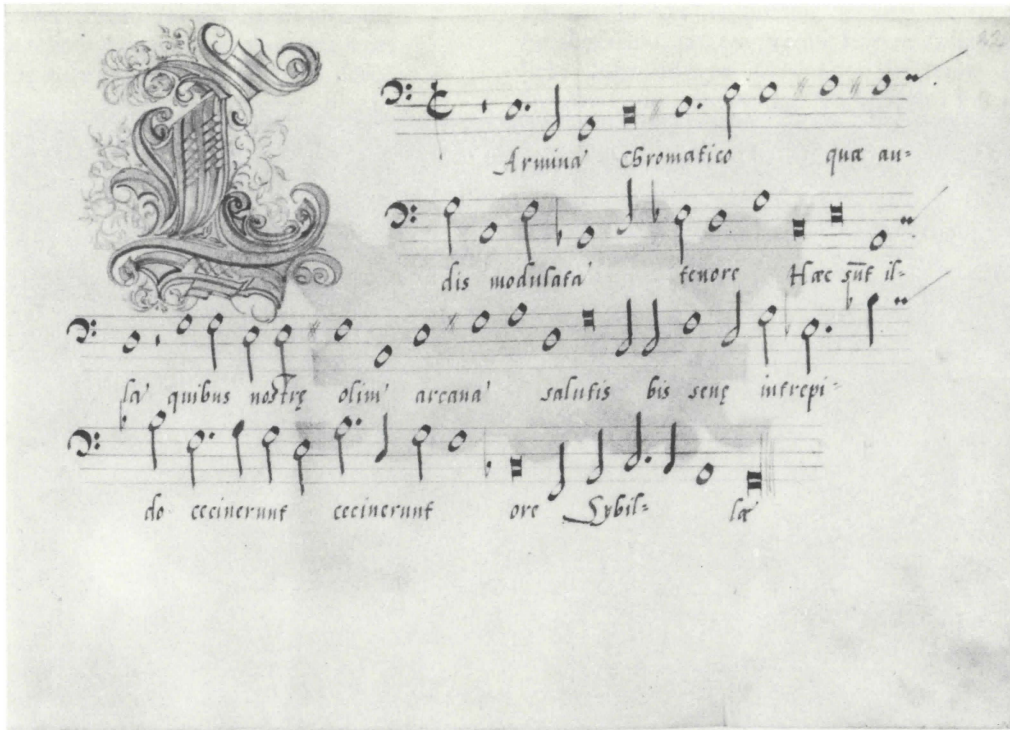 Armina chromatico quæ au=
dis modulata tenore Hæc sūt il=
la quibus nostrę olim arcana salutis bis senę intrepi=
do cecinerunt cecinerunt ore Sybil= læ